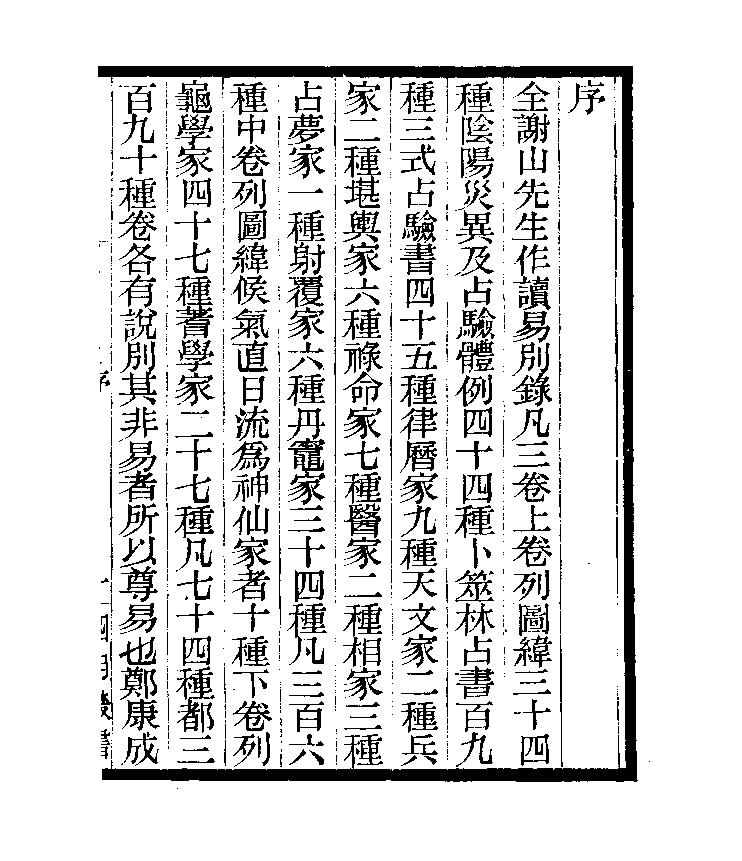 序
全謝山先生作讀易別錄凡三卷上卷列圖緯三十四
種陰陽災異及占驗體例四十四種卜筮林占書百九
種三式占驗書四十五種律曆家九種天文家二種兵
家二種堪輿家六種祿命家七種醫家二種相家三種
占夢家一種射覆家六種丹竈家三十四種凡三百六
種中卷列圖緯候氣直日流為神仙家者十種下卷列
龜學家四十七種蓍學家二十七種凡七十四種都三
百九十種卷各有說別其非易者所以尊易也鄭康成
序